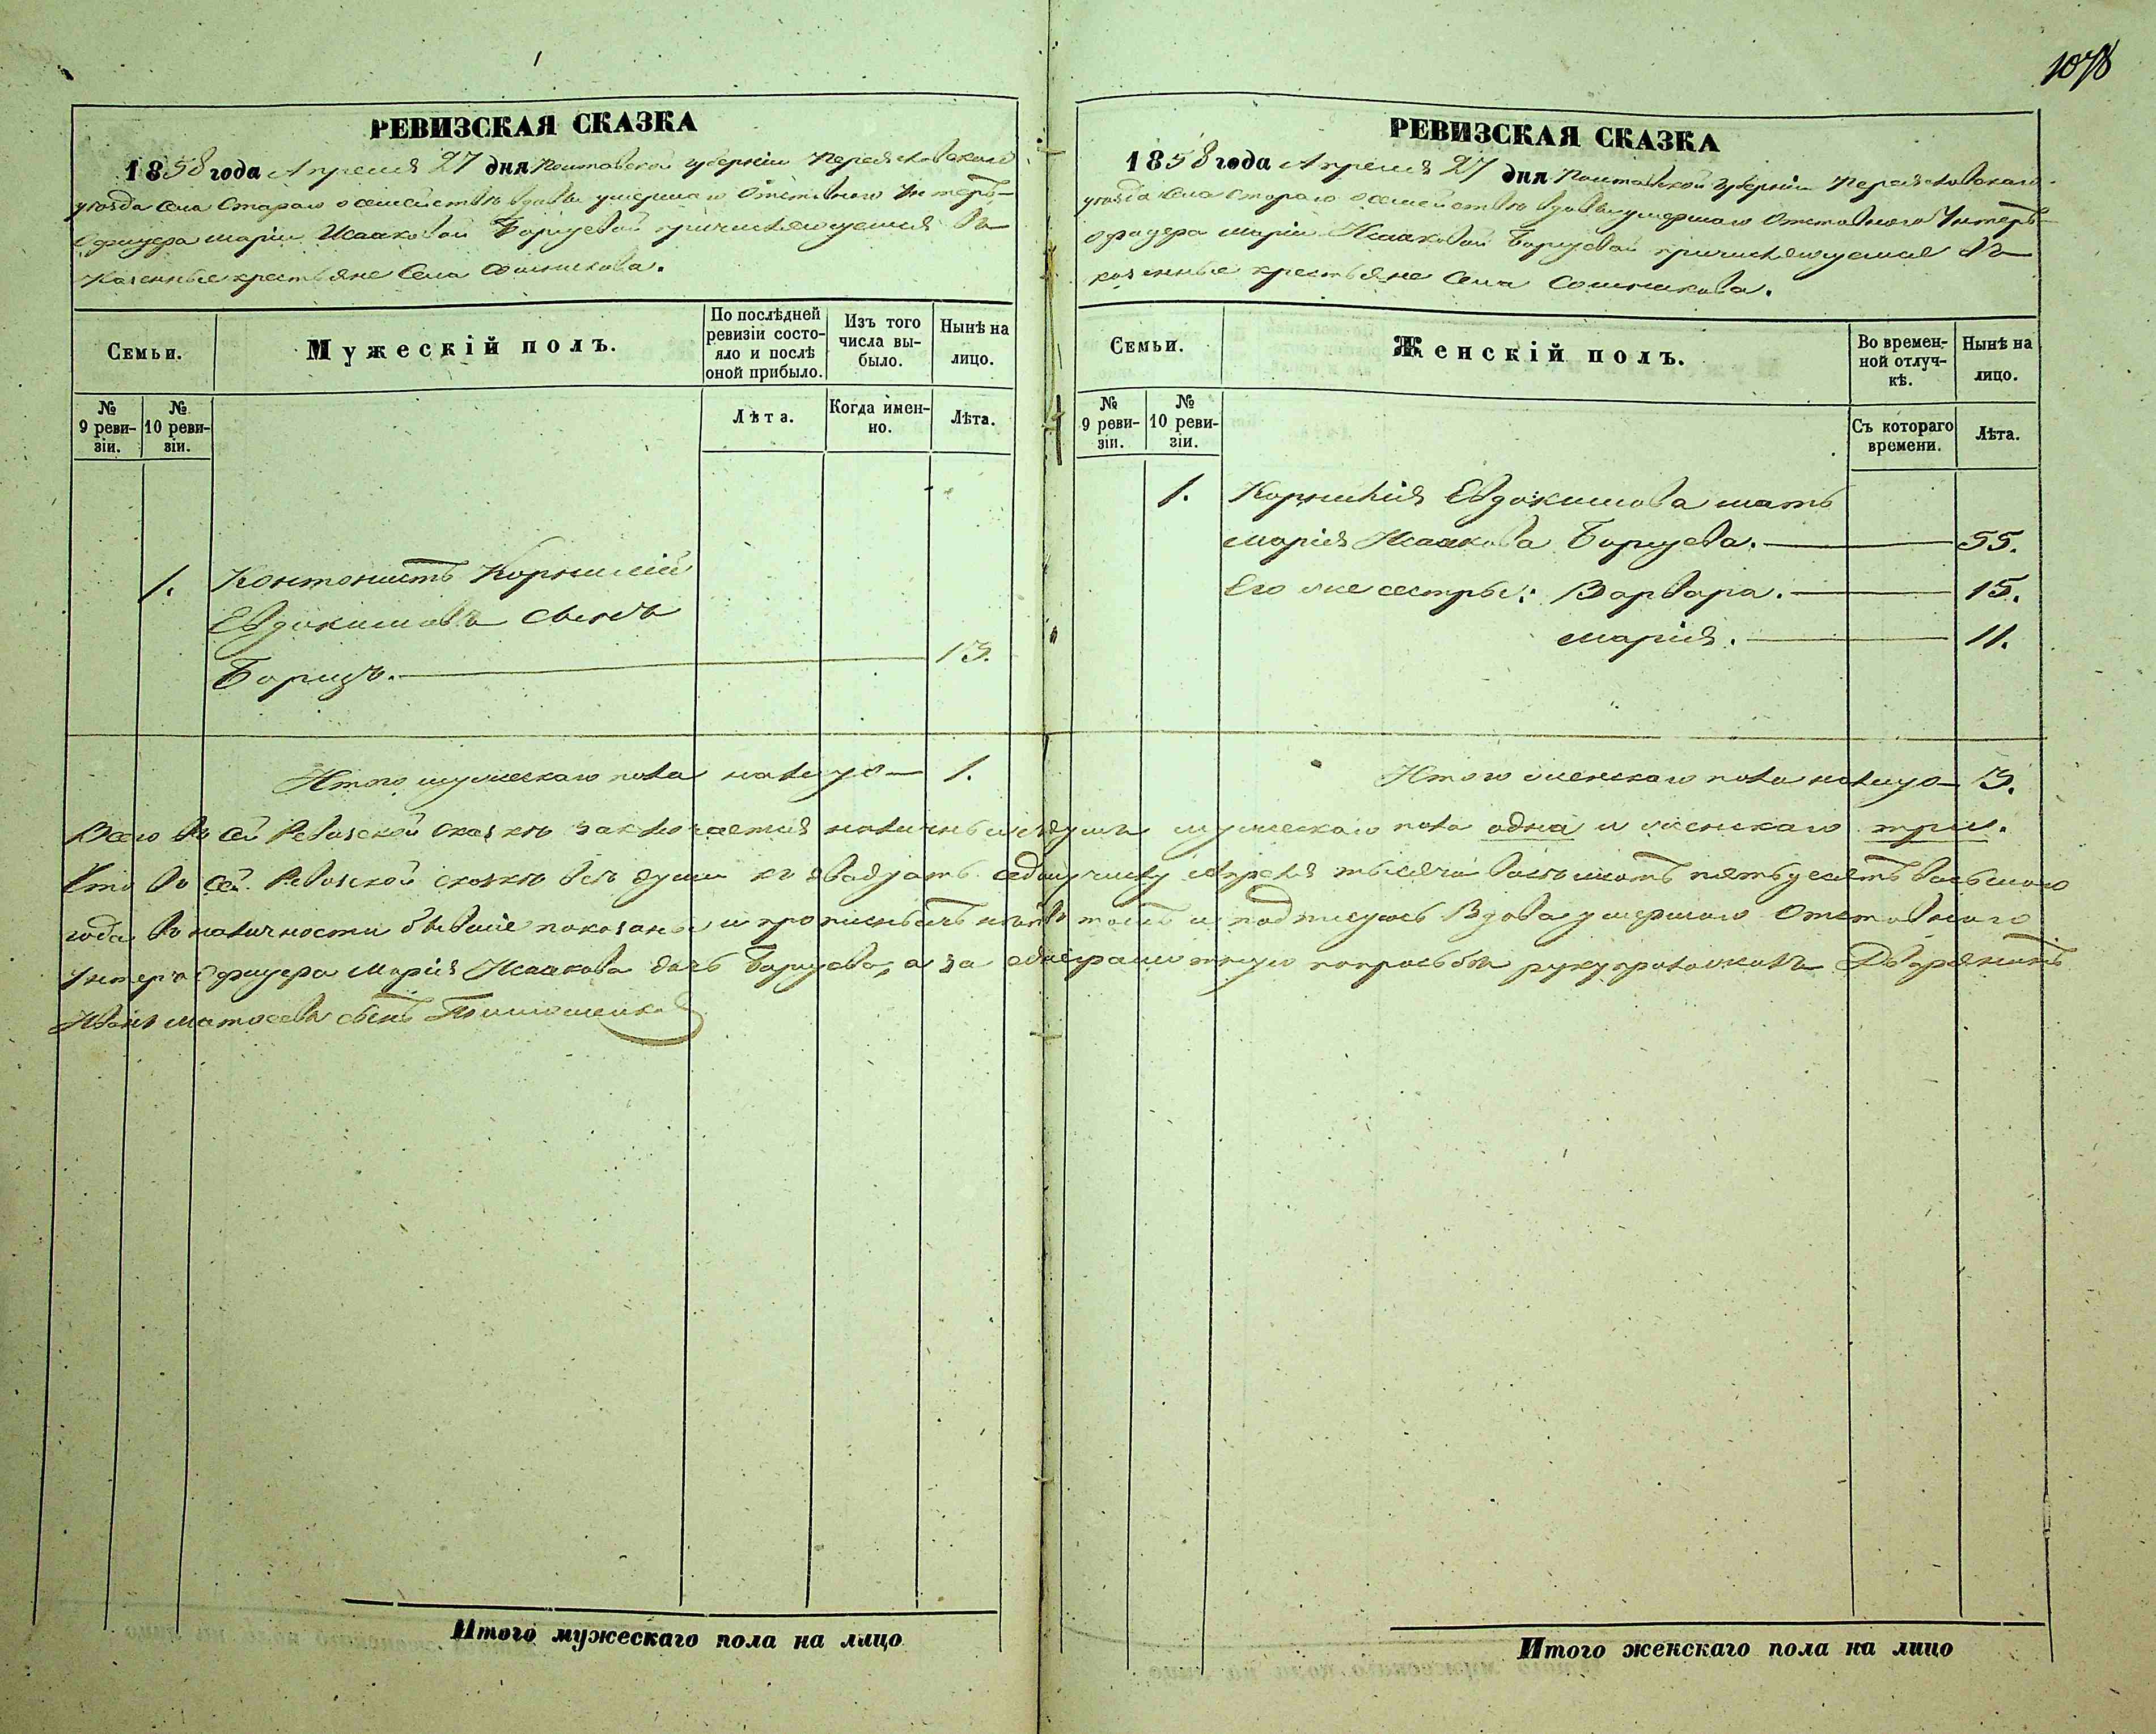 1078
РЕВИЗСКАЯ СКАЗКА
1858 года Апреля 27 дня Полтавской губерніи Переяславскаго
уѣзда села Стараго о семействѣ вдовы умершаго Отставнаго Унтеръ-
Офицера Маріи Исааковой Борцевой причисляющемся въ
Казенные крестьяне Села Сошникова.
Семьи.
Мужескій полъ.
По послѣдней ревизіи состояло и послѣ оной прибыло.
Изъ того числа выбыло.
Нынѣ на лицо.
№ 9 ревизіи.
№ 10 ревизіи.
Лѣта.
Когда именно.
Лѣта.
1. Контонистъ Корнилій
Евдокимовъ сынъ
Борецъ. — 13.
Итого мужескаго пола налицо — 1.
РЕВИЗСКАЯ СКАЗКА
1858 года Апреля 27 дня Полтавской губерніи Переяславскаго
уѣзда села Стараго о семействѣ вдовы умершаго Отставнаго Унтеръ-
офицера Маріи Исааковой Борцевой причисляющемся въ
козенные крестьяне Села Сошникова.
Семьи.
Женскій полъ.
Во временной отлучкѣ.
Нынѣ на лицо.
№ 9 ревизіи.
№ 10 ревизіи.
Съ котораго времени.
Лѣта.
1. Корнилія Евдокимова мать
Марія Исаакова Борцева. — 55.
Его же сестры: Варвара. — 15.
Марія. — 11.
Итого женскаго пола налицо — 3.
Всего въ сей Ревизской сказкѣ заключается наличныхъ душъ мужескаго пола одна и женскаго три.
Что въ сей Ревизской сказкѣ всѣ души къ двадцать седмому числу Апреля тысяча восемьсотъ пятьдесятъ восьмаго
года въ наличности бывшіе показаны и прописныхъ нѣтъ въ томъ и подписуюсь Вдова умершаго Отставнаго
Унтеръ Офицера Марія Исаакова дочь Борцева, а за неграмотную по просьбѣ руку приложилъ Дворянинъ
Иванъ Матвеевъ сынъ Тимошенко
Итого мужескаго пола на лицо
Итого женскаго пола на лицо